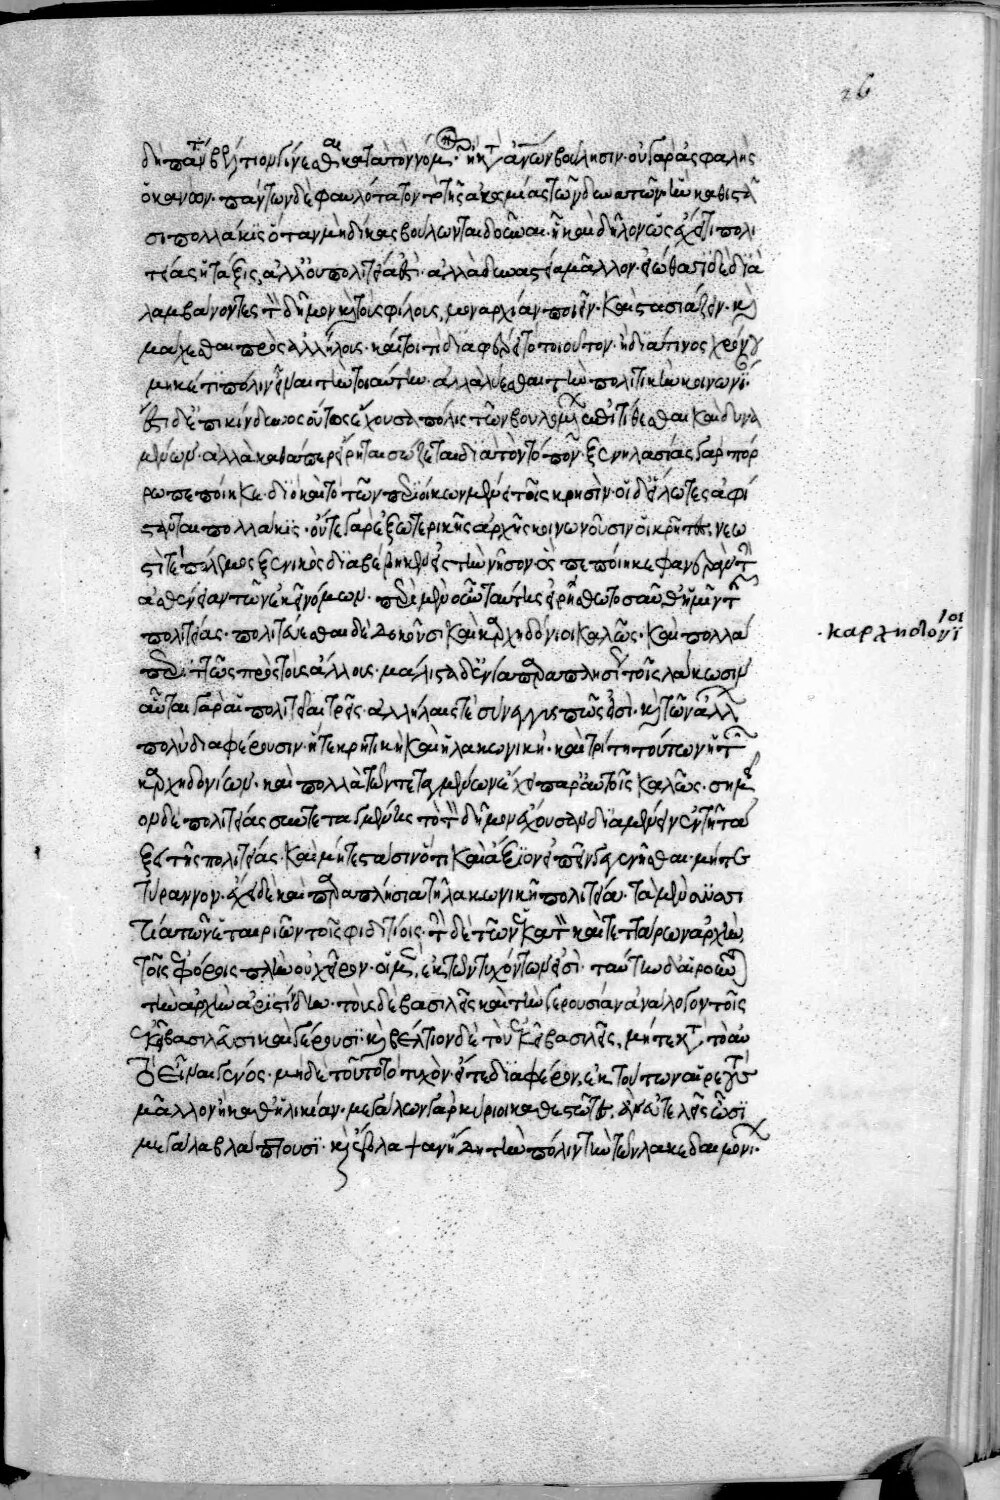 26
δὴ πάντα βέλτιον γίνεσθαι κατὰ τὸν νόμον ἢ κατ' ἀνθρώπων βούλησιν· οὐ γὰρ ἀσφαλὴς
ὁ κανών· πάντων δὲ φαυλότατον τὸ τῆς ἀκοσμίας τῶν δυνατῶν· ἣν καθιστᾶ
σι πολλάκις ὅταν μὴ δίκας βούλωνται δοῦναι· ᾗ καὶ δῆλον ὡς ἔχει τι πολι
τείας ἡ τάξις, ἀλλ' οὐ πολιτεία ἐστὶ· ἀλλὰ δυναστεία μᾶλλον· εἰώθασι δὲ δια
λαμβάνοντες τὸν δῆμον καὶ τοὺς φίλους, μοναρχίαν ποιεῖν· καὶ στασιάζειν· καὶ
μάχεσθαι πρὸς ἀλλήλους· καίτοι τί διαφέρει τὸ τοιοῦτον· ἢ διά τινος χρόνου
μηκέτι πόλιν εἶναι τὴν τοιαύτην· ἀλλὰ λύεσθαι τὴν πολιτικὴν κοινωνίαν·
ἔστι δ' ἐπικίνδυνος οὕτως ἔχουσα πόλις τῶν βουλομένων ἐπιτίθεσθαι καὶ δυνα
μένων· ἀλλὰ καθάπερ εἴρηται σώζεται διὰ τὸν τόπον· ξενηλασίας γὰρ τὸ πόρ
ρω πεποίηκε· διὸ καὶ τὸ τῶν περιοίκων μένει τοῖς κρησὶν· οἱ δ' εἵλωτες ἀφί
στανται πολλάκις· οὔτε γὰρ ἐξωτερικῆς ἀρχῆς κοινωνοῦσιν οἱ κρῆτες· νεω
στί τε πόλεμος ξενικὸς διαβέβηκεν εἰς τὴν νῆσον· ὃς πεποίηκε φανερὰν τὴν
ἀσθένειαν τῶν ἐκεῖ νόμων· περὶ μὲν οὖν ταύτης εἰρήσθω τοσαῦθ' ἡμῖν τῆς
πολιτείας· πολιτεύεσθαι δὲ δοκοῦσι καὶ καρχηδόνιοι καλῶς· καὶ πολλὰ
περιττῶς πρὸς τοὺς ἄλλους· μάλιστα δ' ἔνια παραπλησίως τοῖς λάκωσιν
αὗται γὰρ αἱ πολιτεῖαι τρεῖς· ἀλλήλαις τε σύνεγγυς πώς εἰσι· καὶ τῶν ἄλλων
πολὺ διαφέρουσιν· ἥ τε κρητικὴ καὶ ἡ λακωνικὴ· καὶ τρίτη τούτων ἡ τῶν
καρχηδονίων· καὶ πολλὰ τῶν τεταγμένων ἔχει παρ' αὐτοῖς καλῶς· σημεῖ
ον δὲ πολιτείας συντεταγμένης τὸ τὸν δῆμον ἔχουσαν διαμένειν ἐν τῇ τά
ξει τῆς πολιτείας· καὶ μήτε στάσιν ὅτι καὶ ἄξιον εἰπεῖν γεγενῆσθαι· μήτε
τύραννον· ἔχει δὲ καὶ παραπλήσια τῇ λακωνικῇ πολιτείᾳ· τὰ μὲν συσσί
τια τῶν ἑταιριῶν τοῖς φιδιτίοις· τὴν δὲ τῶν ἑκατὸν καὶ τεττάρων ἀρχὴν
τοῖς ἐφόροις πλὴν οὐ χεῖρον· οἱ μὲν, ἐκ τῶν τυχόντων εἰσὶ· ταύτην δ' αἱροῦνται
τὴν ἀρχὴν ἀριστίνδην· τοὺς δὲ βασιλεῖς καὶ τὴν γερουσίαν ἀνάλογον τοῖς
ἐκεῖ βασιλεῦσι καὶ γέρουσι· καὶ βέλτιον δὲ τοὺς ἐκεῖ βασιλεῖς, μήτε κατὰ τὸ αὐ
τὸ εἶναι γένος· μηδὲ τοῦτο τὸ τυχὸν· εἴ τε διαφέρον, ἐκ τούτων αἱρετοὺς
μᾶλλον ἢ καθ' ἡλικίαν· μεγάλων γὰρ κύριοι καθεστῶτες, ἂν εὐτελεῖς ὦσι
μεγάλα βλάπτουσι· καὶ ἔβλαψαν ἤδη τὴν πόλιν τὴν τῶν λακεδαιμονίων·
καρχηδόνιοι